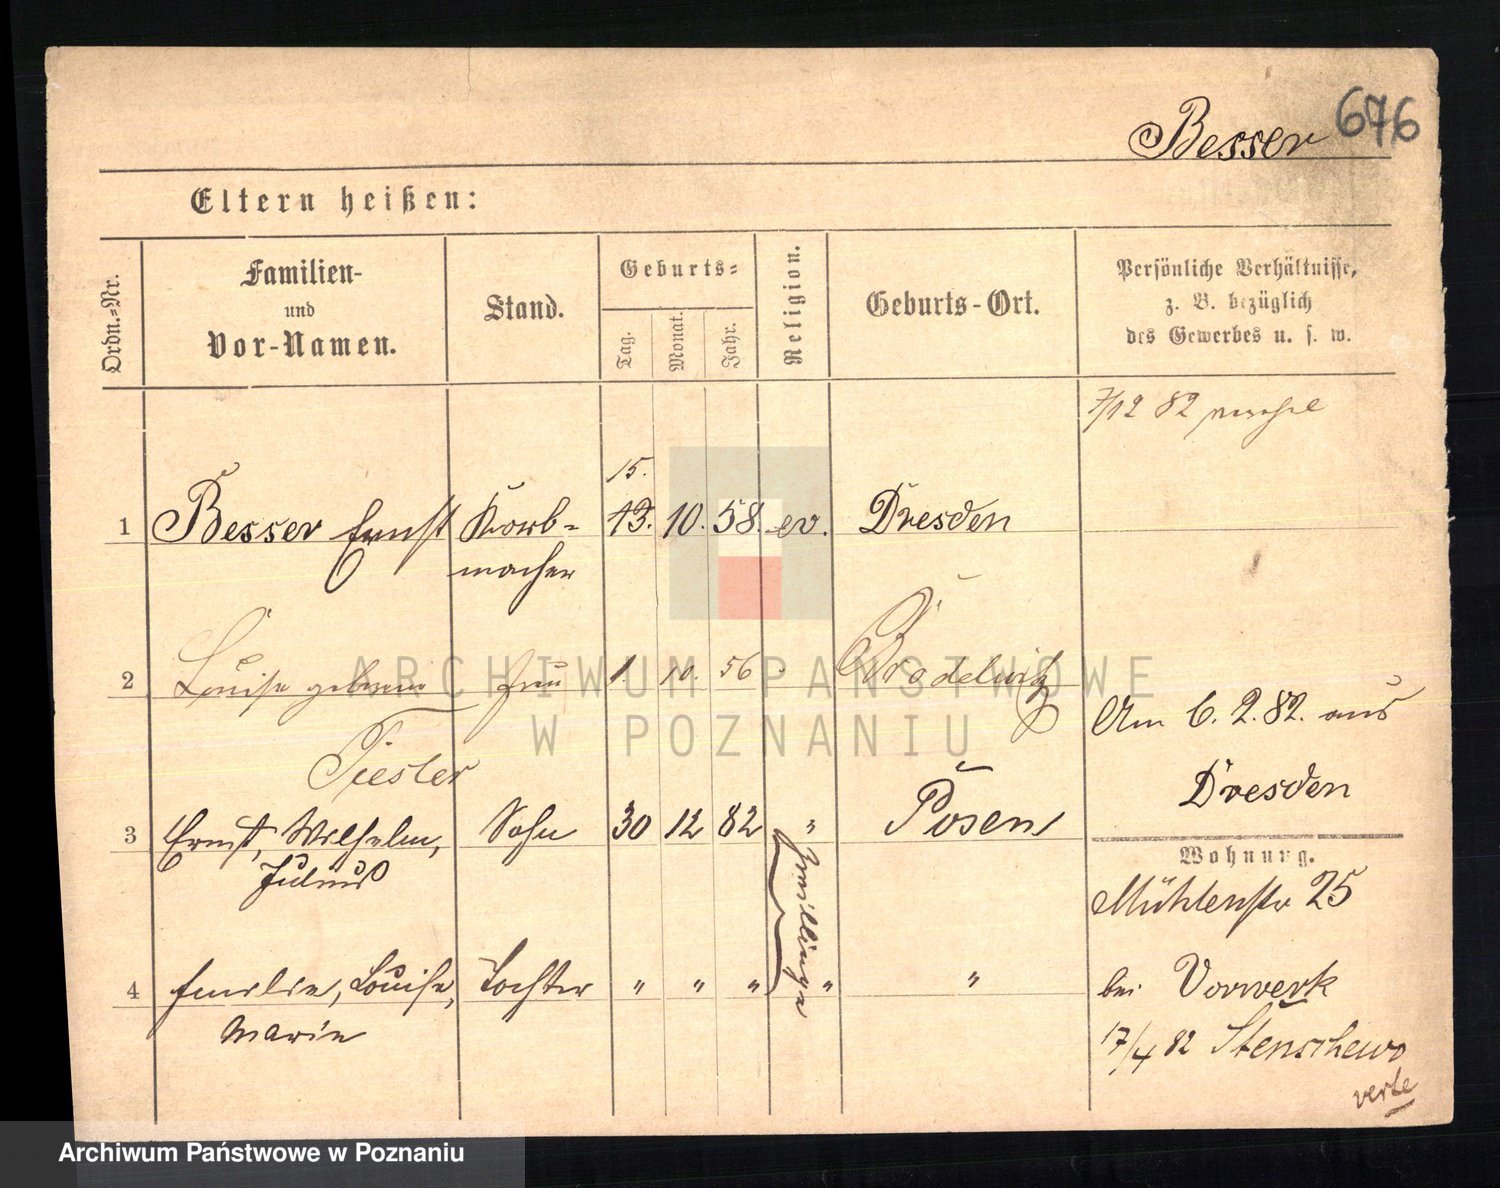 Besser 676
Eltern heißen:
Ordn.-Nr.
Familien-
und
Vor-Namen.
Stand.
Geburts-
Tag.
Monat.
Jahr.
Religion.
Geburts-Ort.
Persönliche Verhältnisse,
z. B. bezüglich
des Gewerbes u. s. w.
7/12 82
15.
1 Besser Ernst Korb- 13. 10. 58. ev. Dresden
macher
2 Louise geborene Frau 1. 10. 56 Bradelwitz
Tiesler
Am 6. 2. 82. aus
Dresden
3 Ernst, Wilhelm, Sohn 30 12 82 " Posen
Julius
Zwillinge
Wohnung.
Mühlenstr 25
4 Emilie, Louise, Tochter " " " " "
Marie
bei Vorwerk
17/4 82 Stenschewo
verte
ARCHIWUM PAŃSTWOWE
W POZNANIU
Archiwum Państwowe w Poznaniu